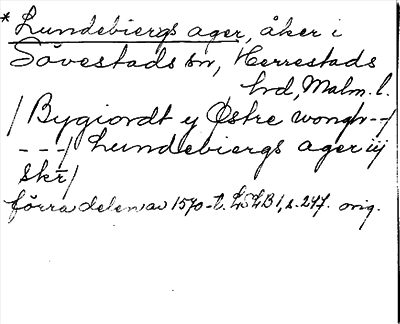 * Lundebiergs ager, åker i
Sövestads sn, Herrestads
hrd, Malm. l.
/ Bygiordt y Østre wongh - - /
- - - / Lundebiergs ager iij
skr /
förra delen av 1570-t. LSLB 1, s. 247. orig.